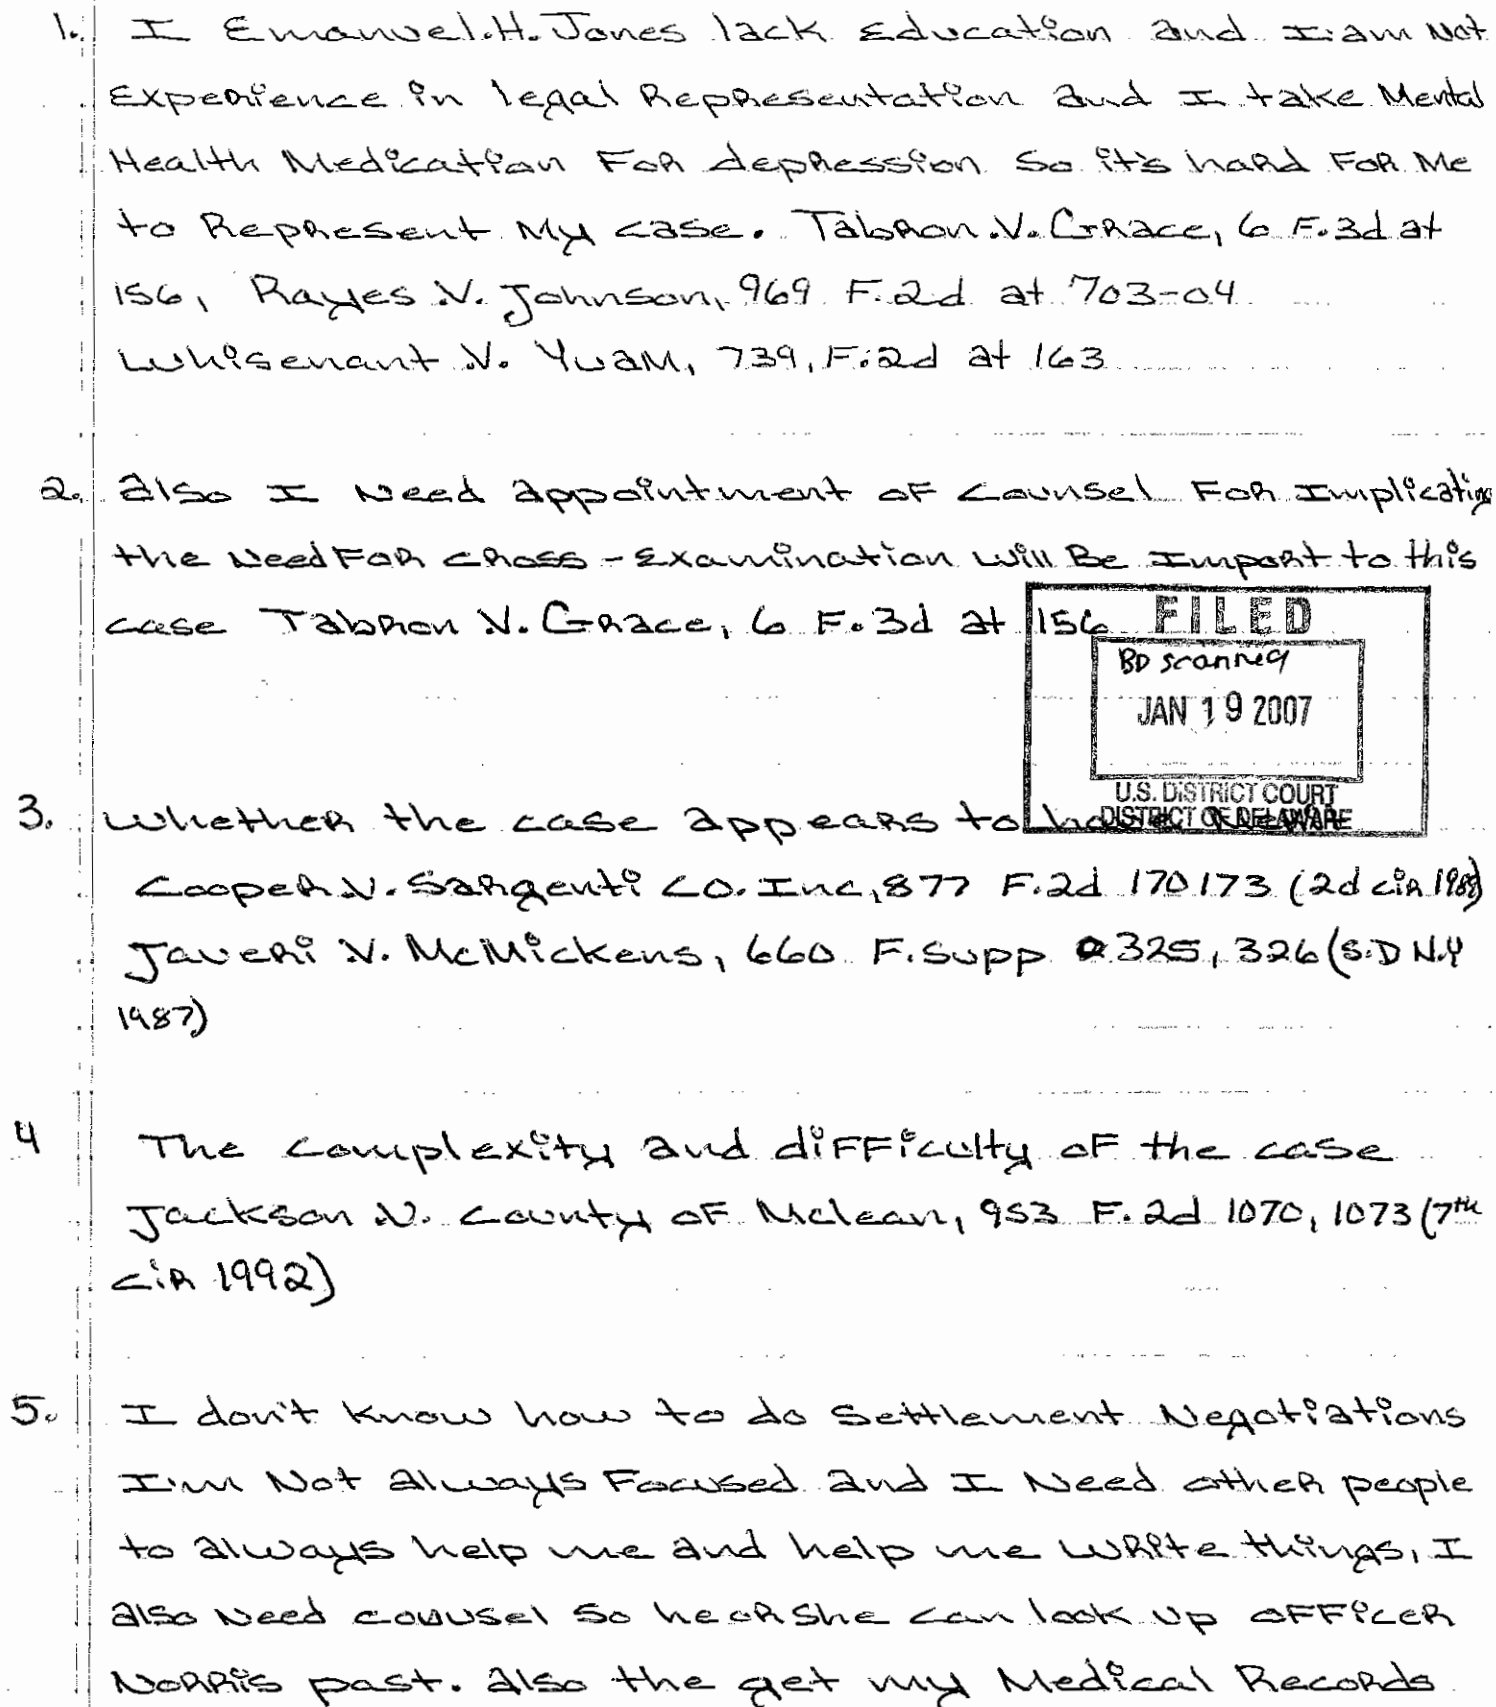 1. I Emanuel.H.Jones lack Education and I am Not
Experience in legal Representation and I take Mental
Health Medication For depression So it's hard For Me
to Represent My case. Tabron.V. Grace, 6 F.3d at
156, Rayes V. Johnson, 969 F.2d at 703-04
Whisenant V. Yuam, 739, F.2d at 163
2. also I Need appointment of Counsel For Implicating
the Need For cross-Examination will Be Import to this
case Tabron V. Grace, 6 F.3d at 156
FILED
BD scanned
JAN 19 2007
U.S. DISTRICT COURT
DISTRICT OF DELAWARE
3. Whether the case appears to
Cooper V. Sargenti CO. Inc, 877 F.2d 170 173 (2d cir
Javeri V. McMickens, 660 F.Supp 325, 326 (S.D N.Y
1987)
4 The complexity and difficulty of the case
Jackson V. County of Mclean, 953 F.2d 1070, 1073 (7th
cir 1992)
5. I don't know how to do Settlement Negotiations
I'm Not always Focused and I Need other people
to always help me and help me write things, I
also Need counsel so he or She can look up officer
Norris past. also the get my Medical Records